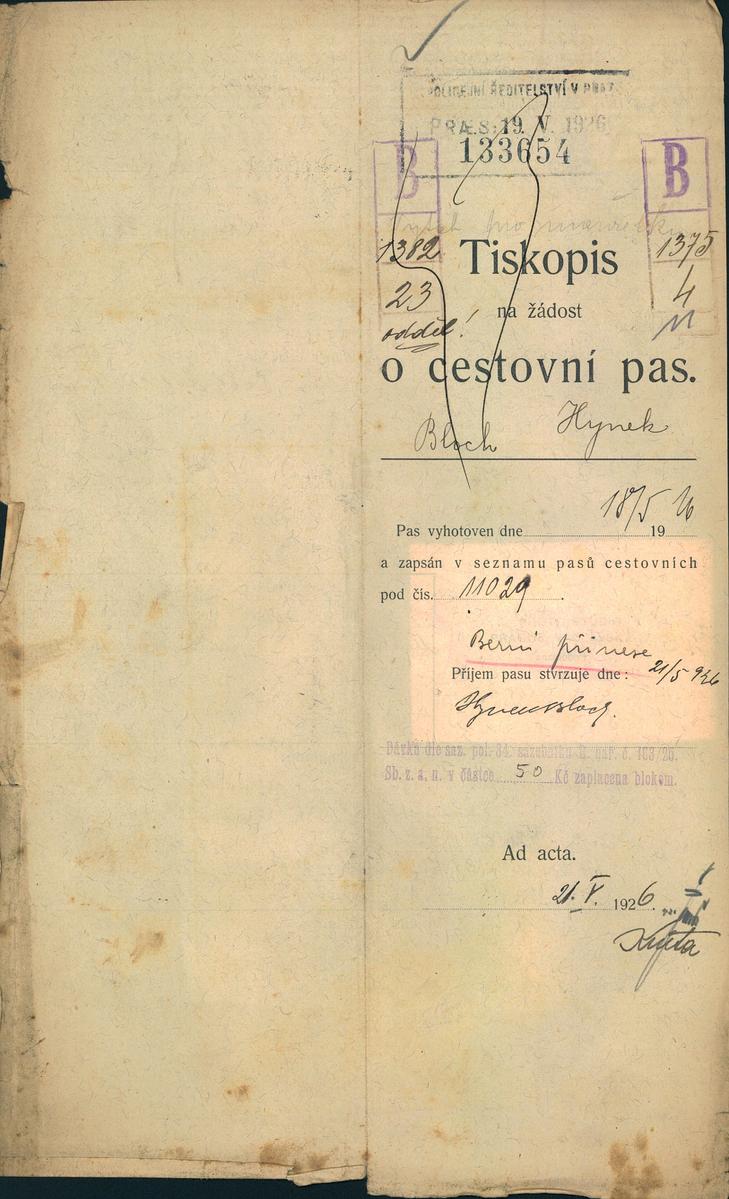 POLICEJNÍ ŘEDITELSTVÍ V PRAZE
PRÆS: 19. V. 1926
133654
B
B
1382
1375
Tiskopis
23
4
na žádost
odděl!
o cestovní pas.
Bloch Hynek
18/5 26
Pas vyhotoven dne 19
a zapsán v seznamu pasů cestovních
pod čís. 11029.
Berní přinese
Příjem pasu stvrzuje dne: 21/5 926
Hynek Bloch.
Dávka dle saz. pol. 34. sazebníku k nař. č. 163/20.
Sb. z. a. n. v částce 50 Kč zaplacena blokem.
Ad acta.
21. V. 1926.